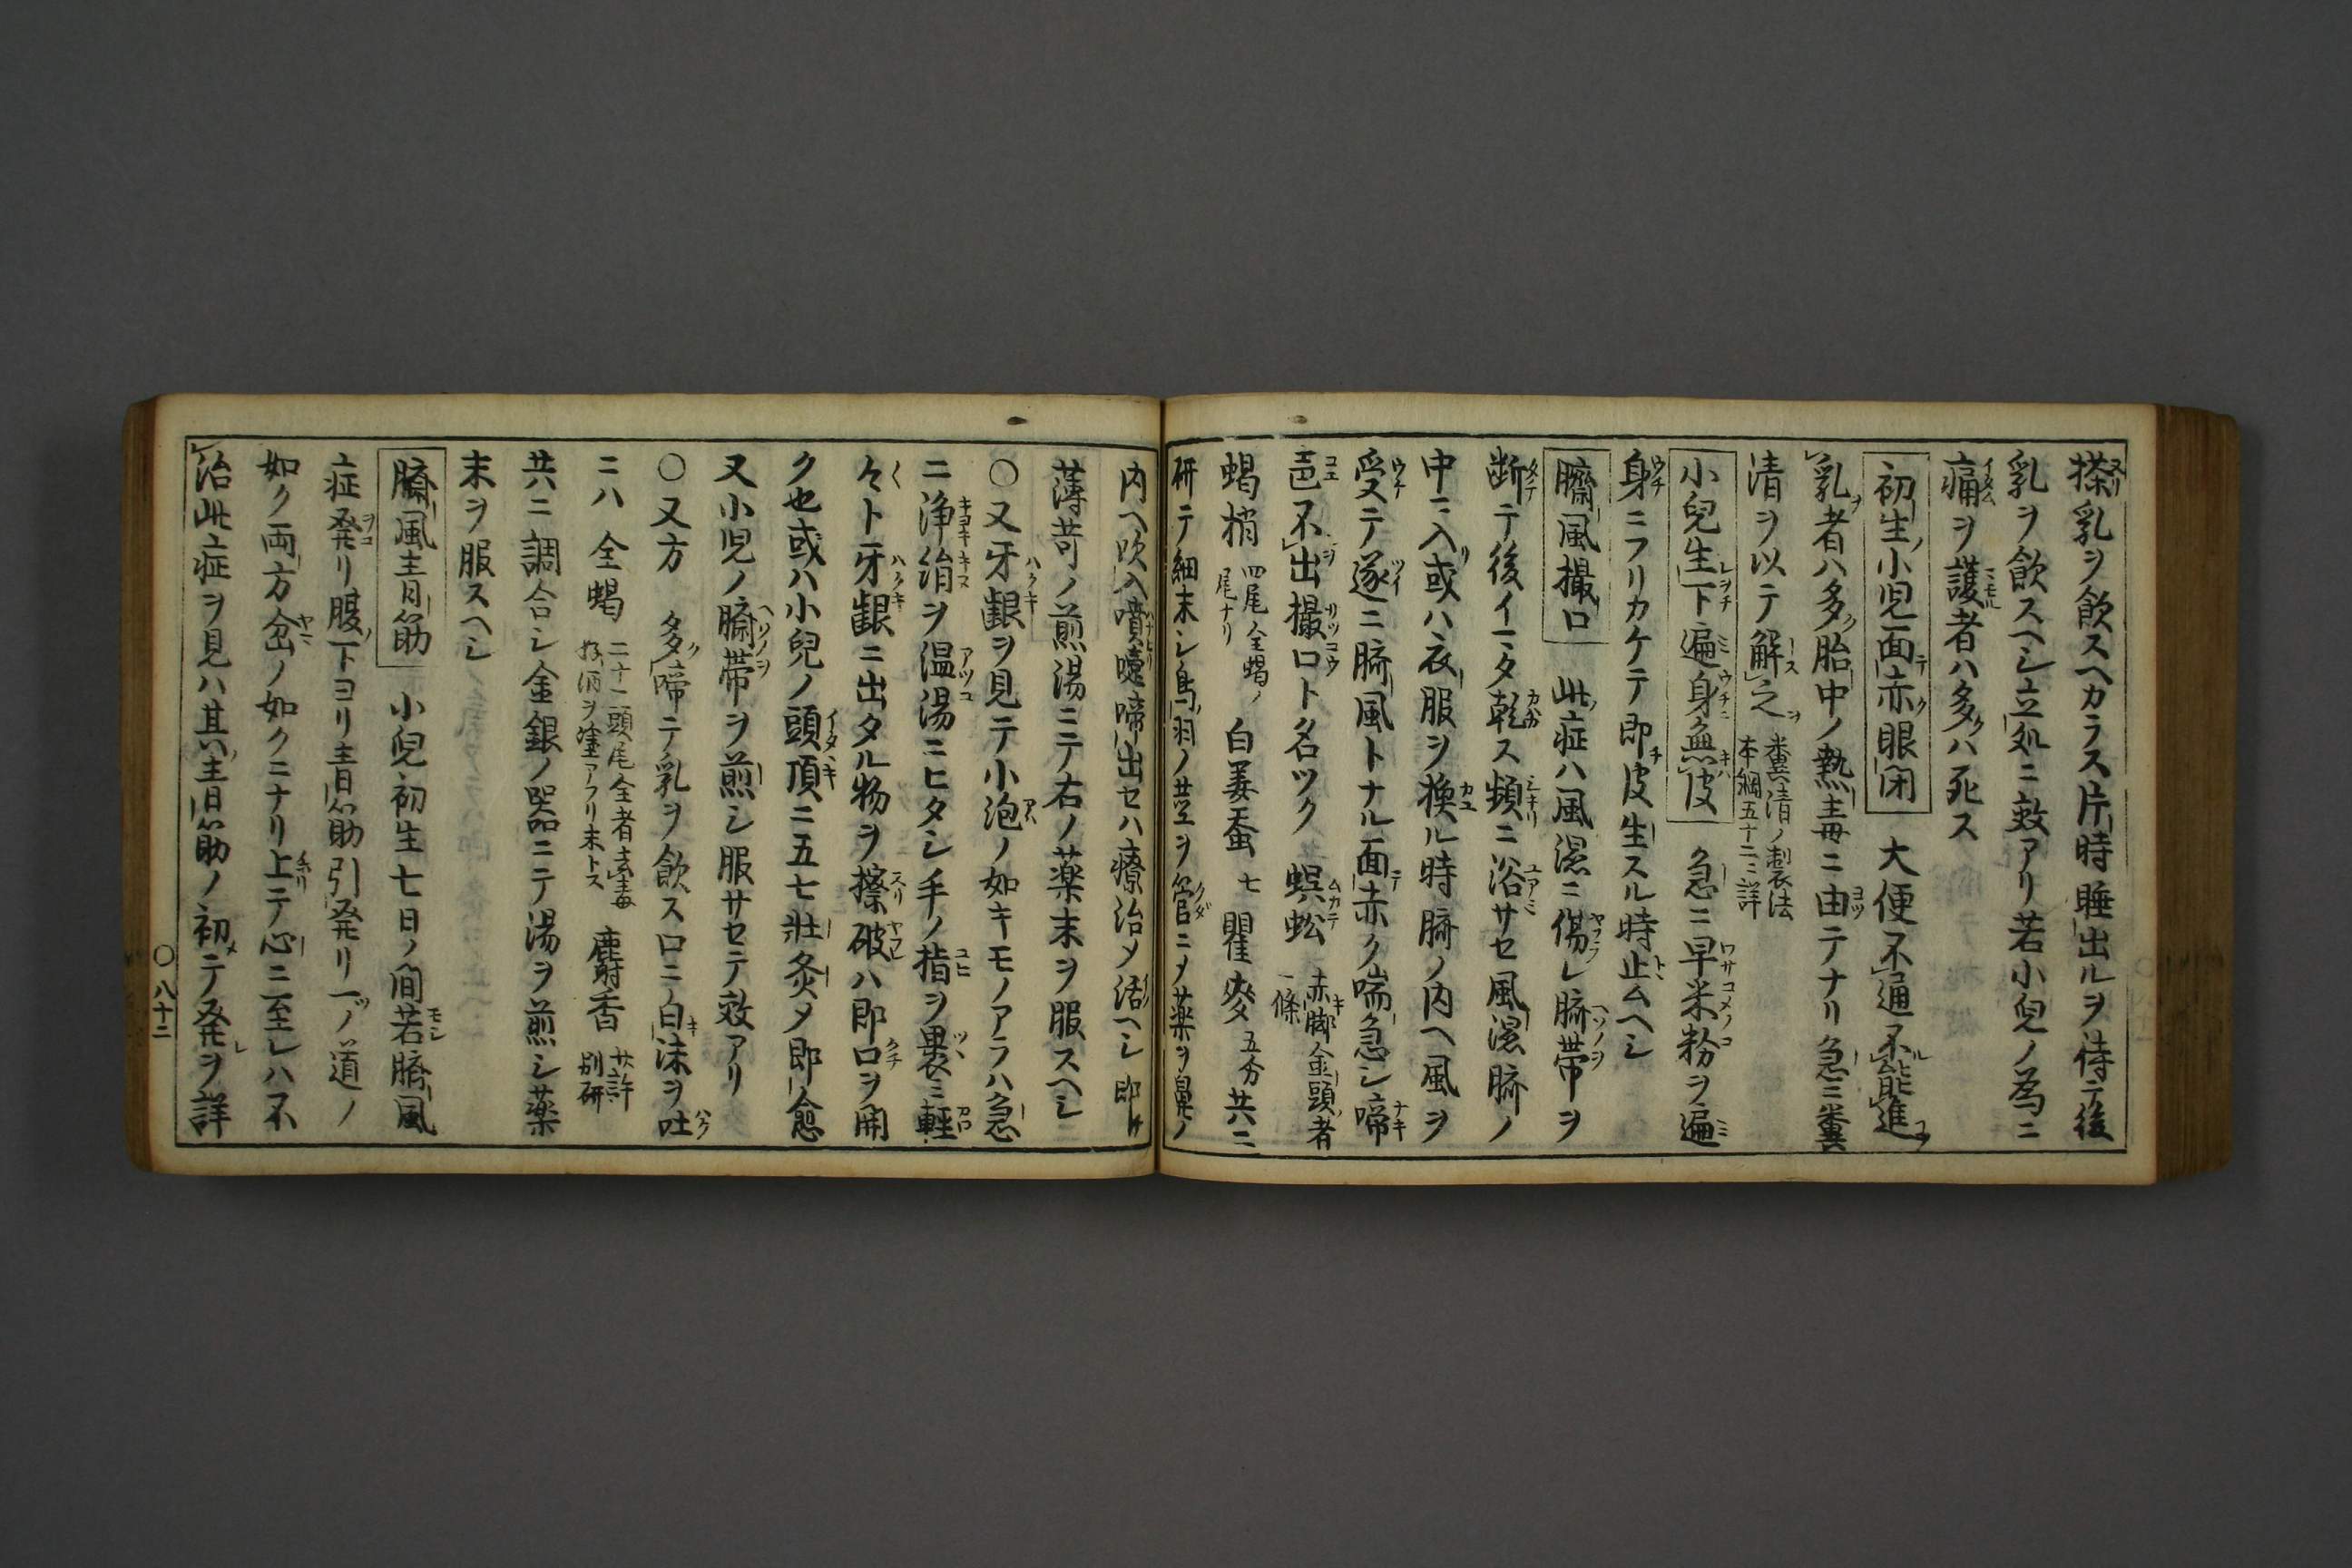 搽乳ヲ飲スヘカラス片時睡出ルヲ待テ後
乳ヲ飲スヘシ立処ニ效アリ若小兒ノ為ニ
痛ヲ護者ハ多ハ死ス
初生小児面赤眼閉 大便不通不能進
乳者ハ多胎中ノ熱毒ニ由テナリ急ニ糞
清ヲ以テ解之 糞清ノ製法本綱五十二ニ詳
小兒生下遍身無皮 急ニ早米粉ヲ遍
身ニフリカケテ即皮生スル時止ムヘシ
臍風撮口 此症ハ風濕ニ傷レ臍帯ヲ
断テ後イマタ乾ス頻ニ浴サセ風濕臍ノ
中ニ入或ハ衣服ヲ換ル時臍ノ内ヘ風ヲ
受テ遂ニ臍風トナル面赤ク喘急シ啼
声不出撮口ト名ツク 蜈蚣 赤脚金頭者一條
蝎梢 四尾全蝎ノ尾ナリ 白姜蚕 七 瞿麥 五分 共ニ
研テ細末シ鳥羽ノ莖ヲ管ニメ薬ヲ鼻ノ
内ヘ吹入噴嚏啼出セハ療治メ活ヘシ即
薄苛ノ煎湯ニテ右ノ薬末ヲ服スヘシ
○又牙齦ヲ見テ小泡ノ如キモノアラハ急
ニ浄絹ヲ温湯ニヒタシ手ノ指ヲ裹ミ軽
々ト牙齦ニ出タル物ヲ擦破ハ即口ヲ開
ク也或ハ小兒ノ頭頂ニ五七壯灸メ即愈
又小児ノ臍帯ヲ煎シ服サセテ效アリ
○又方 多啼テ乳ヲ飲ス口ニ白沫ヲ吐
ニハ 全蝎 二十一頭尾全者去毒好酒ヲ塗アフリ末トス 麝香 廿許別研
共ニ調合シ金銀ノ器ニテ湯ヲ煎シ薬
末ヲ服スヘシ
臍風青筋 小兒初生七日ノ間若臍風
症発リ腹下ヨリ青筋引発リ一ノ道ノ
如ク両方岔ノ如クニナリ上テ心ニ至レハ不
治此症ヲ見ハ其青筋ノ初テ発ヲ詳
○八十二